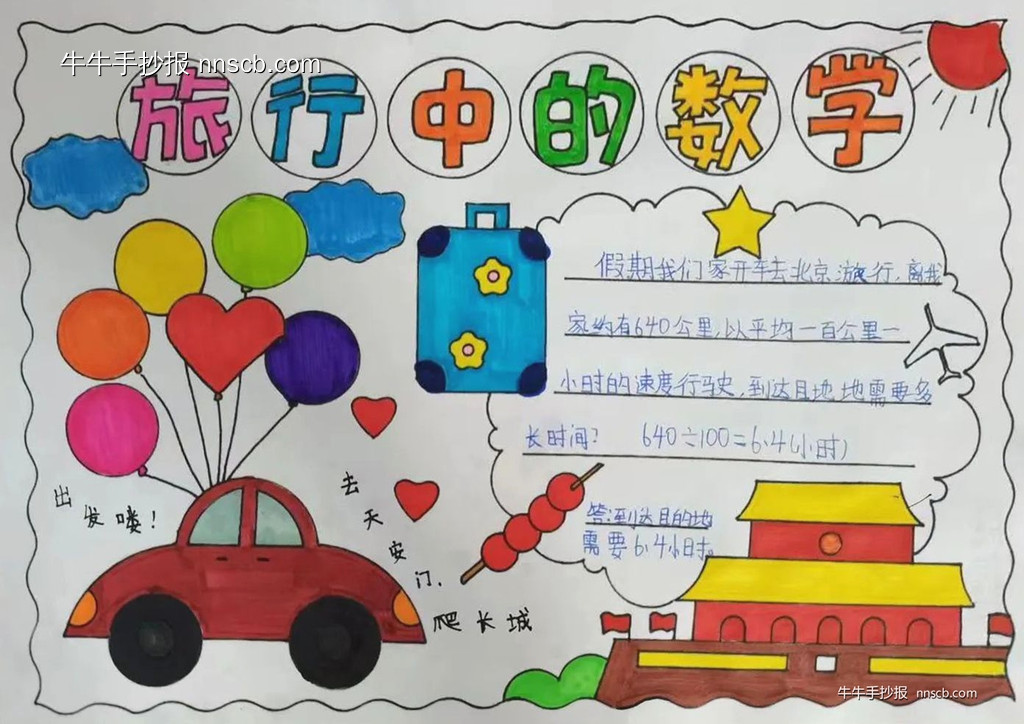 牛牛手抄报 nnscb.com
旅行中的数学
假期我们家开车去北京旅行,离我
家约有640公里,以平均一百公里一
小时的速度行驶,到达目地地需要多
长时间? 640÷100=6.4(小时)
答:到达目的地
需要6.4小时。
出发喽!
去天安门,
爬长城
牛牛手抄报 nnscb.com